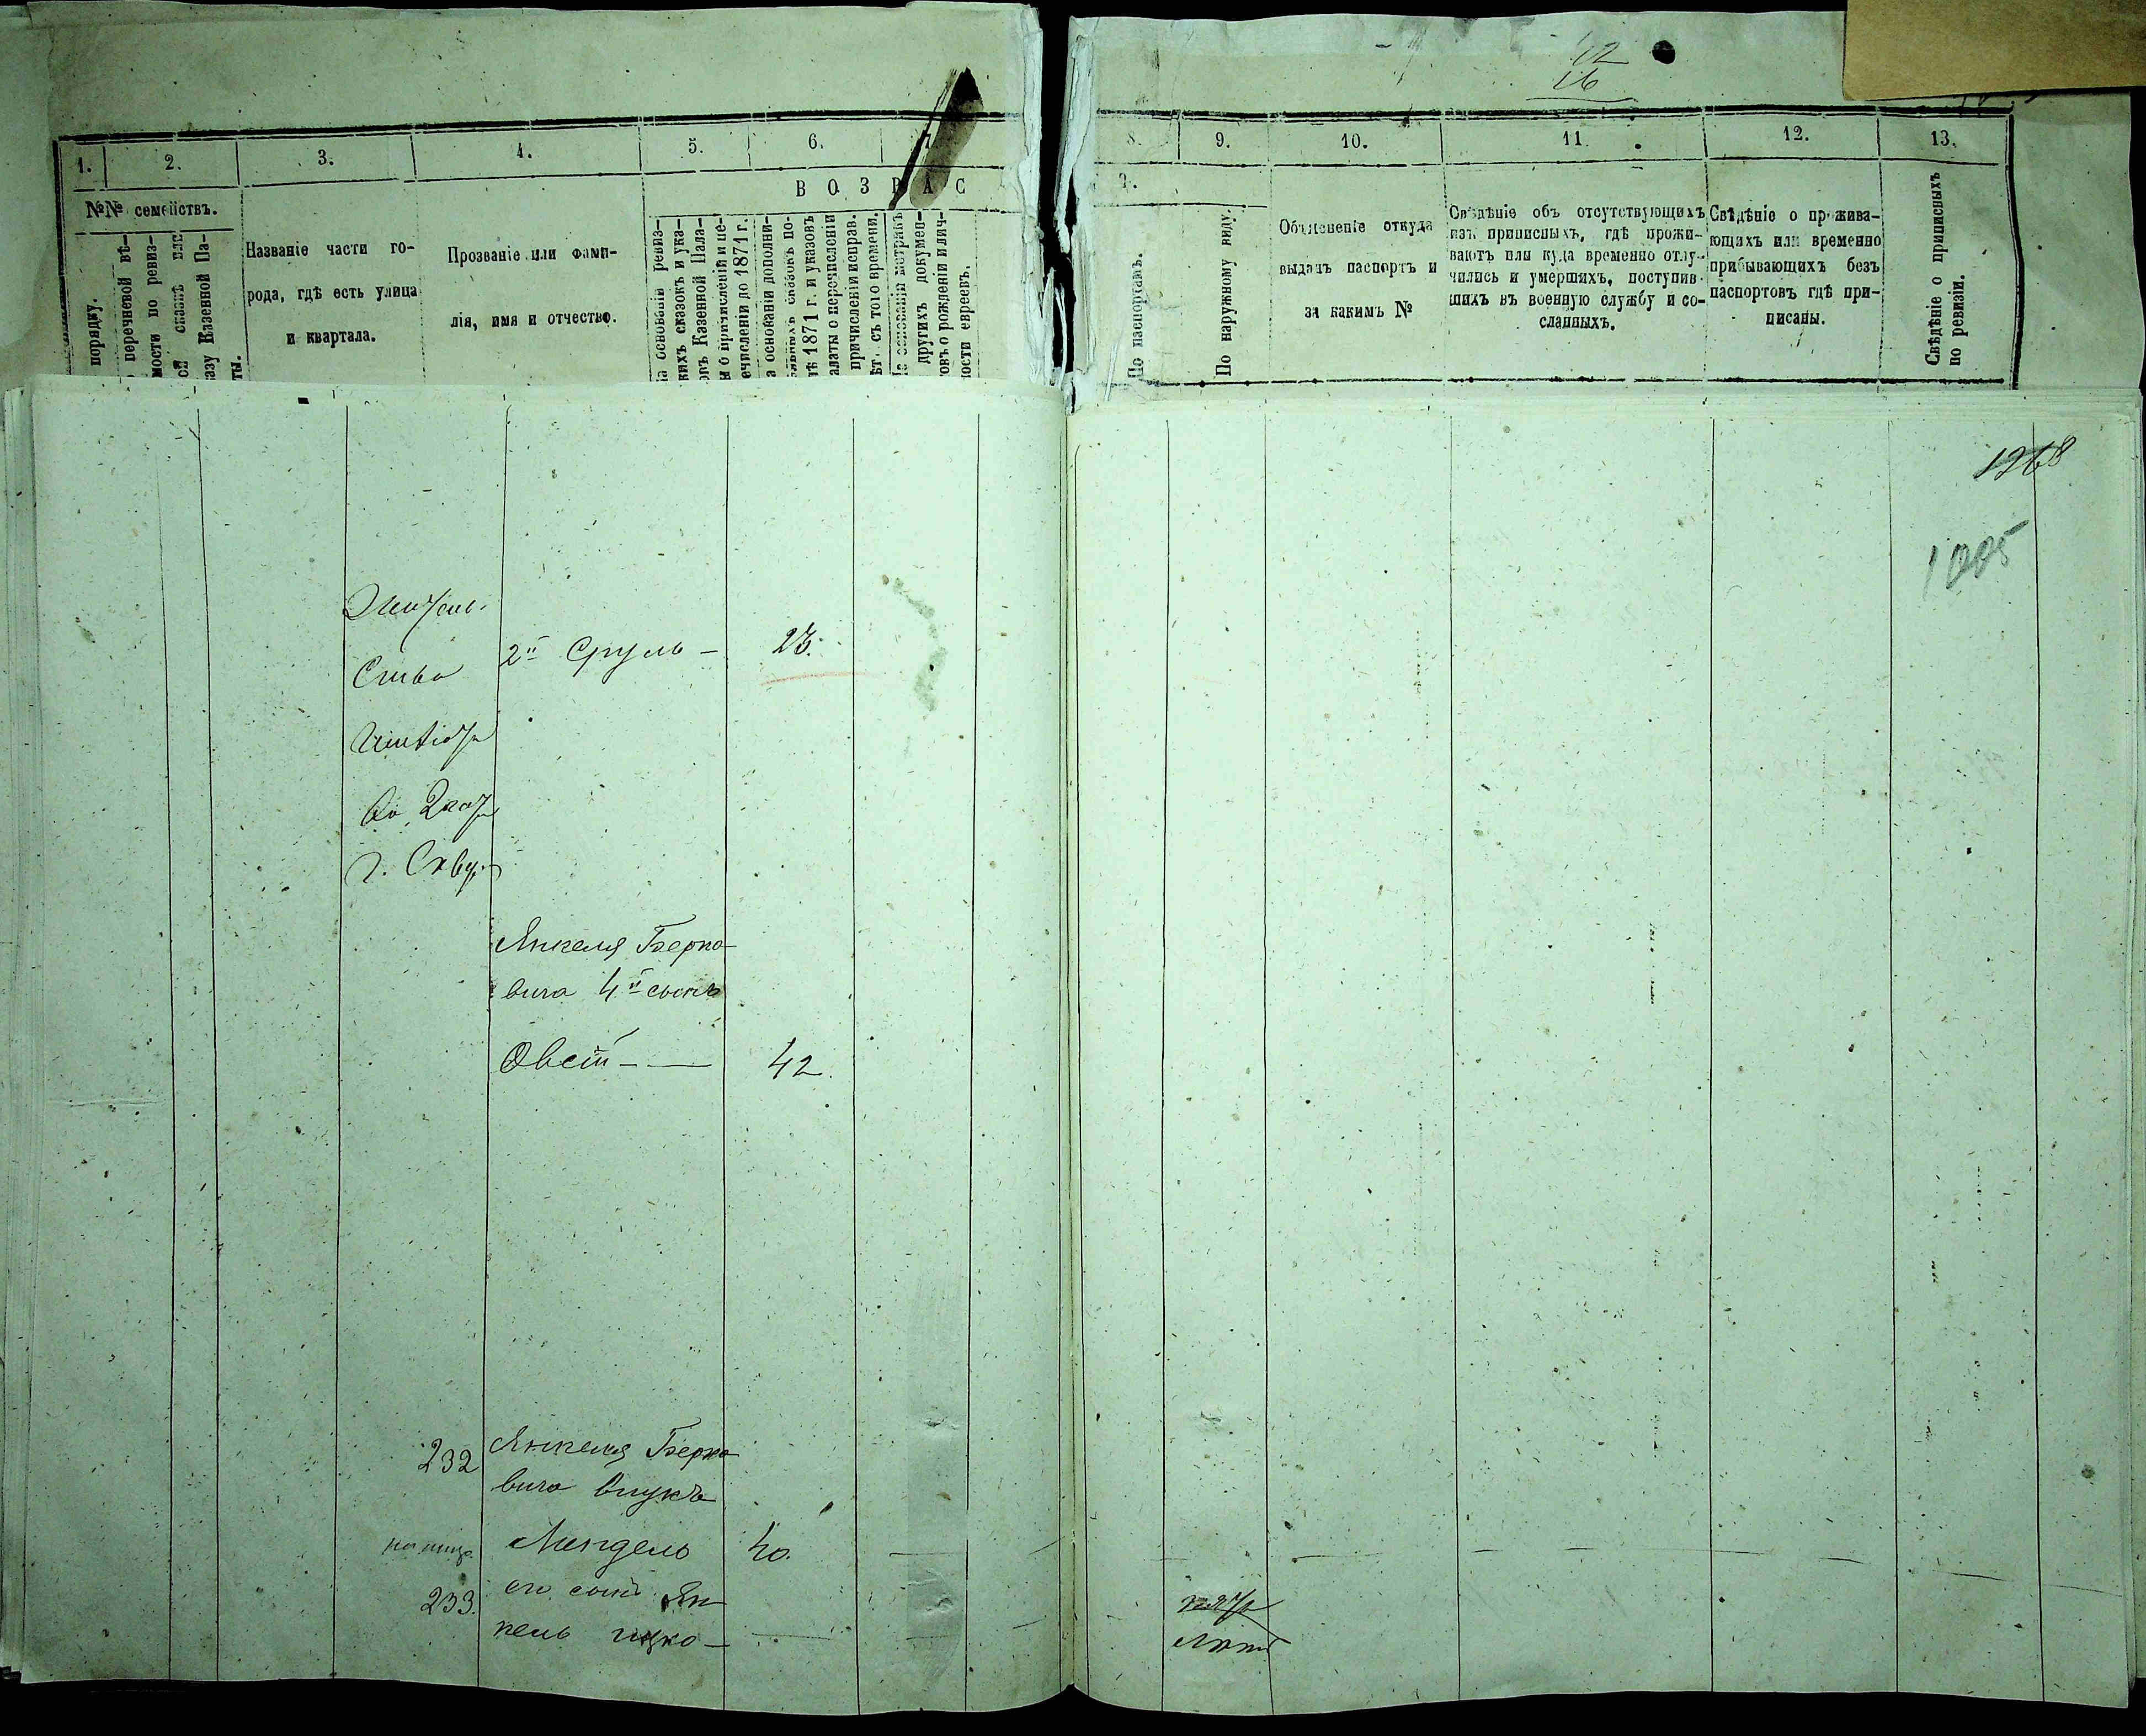 12
16
1. 2. 3. 4. 5. 6. 7. 8. 9. 10. 11. 12. 13.
ВОЗРАС
№№ семействъ.
порядку.
перечневой вѣ-
мости по ревиз-
ой сказкѣ или
казу Казенной Па-
ты.
Названіе части го-
рода, гдѣ есть улица
и квартала.
Прозваніе или фами-
лія, имя и отчество.
На основаніи ревиз-
кихъ сказокъ и ука-
овъ Казенной Пала-
ы о причисленіи и пе-
ечисленіи до 1871 г.
а основаніи дополни-
сказокъ по-
лѣ 1871 г. и указовъ
алаты о перечисленіи
причисленіи исправ.
лѣт. съ того времени.
На основаніи метрикъ
другихъ докумен-
товъ о рожденіи и лич-
ности евреевъ.
По паспортамъ.
По наружному виду.
Объясненіе откуда
выданъ паспортъ и
за какимъ №
Свѣдѣніе объ отсутствующихъ
изъ приписныхъ, гдѣ прожи-
ваютъ или куда временно отлу-
чились и умершихъ, поступив-
шихъ въ военную службу и со-
сланныхъ.
Свѣдѣніе о прожива-
ющихъ или временно
прибывающихъ безъ
паспортовъ гдѣ при-
писаны.
Свѣдѣніе о приписныхъ
по ревизіи.
1268
1005
Житель
ство
2й Сруль — 23.
во 2
г. Сквир
Янкеля Берко-
вича 4й сынъ
Овсій — 42.
232 Янкеля Берко-
вича внукъ
Мендель 40.
233. его сынъ Ян-
кель Ицко —
лѣтъ